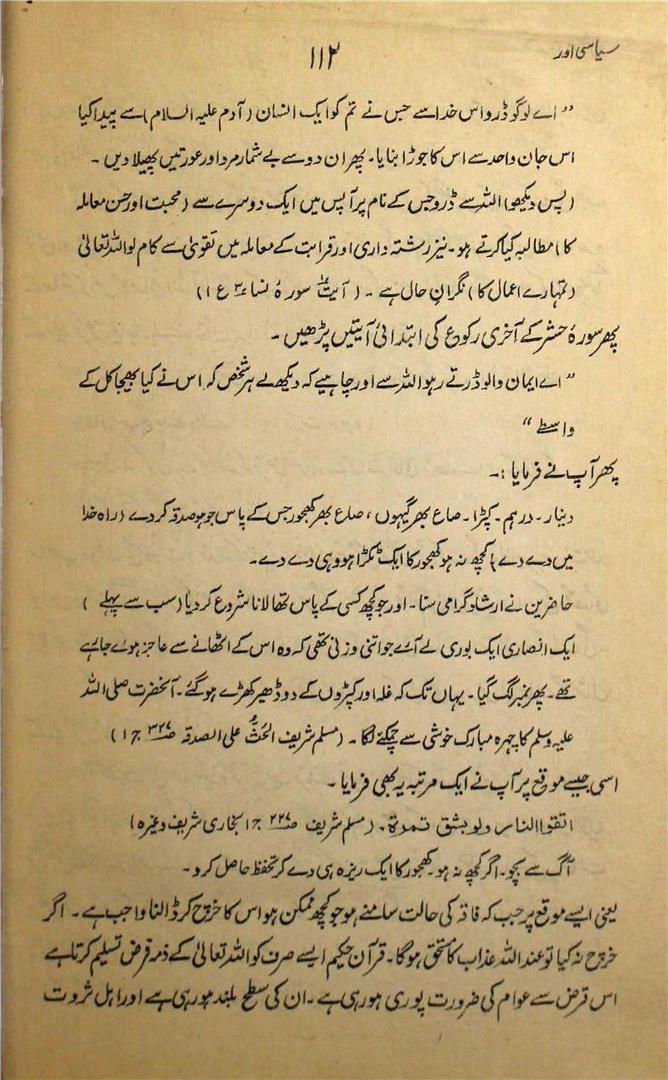 سیاسی اور
۱۱۲
"اے لوگو ڈرو اس خدا سے جس نے تم کو ایک انسان (آدم علیہ السلام) سے پیدا کیا
اس جان واحد سے اس کا جوڑا بنایا۔ پھر ان دو سے بے شمار مرد اور عورتیں پھیلا دیں ۔
(پس دیکھو) اللہ سے ڈرو جس کے نام پر آپس میں ایک دوسرے سے (محبت اور حسن معاملہ
کا) مطالبہ کیا کرتے ہو۔ نیز رشتہ داری اور قرابت کے معاملہ میں تقویٰ سے کام لو اللہ تعالیٰ
(تمہارے اعمال کا) نگرانِ حال ہے ۔ (آیت ۱ سورۂ نساء ۴ ع ۱)
پھر سورۂ حشر کے آخری رکوع کی ابتدائی آیتیں پڑھیں ۔
"اے ایمان والو ڈرتے رہو اللہ سے اور چاہیے کہ دیکھ لے ہر شخص کہ اس نے کیا بھیجا کل کے
واسطے"
پھر آپ نے فرمایا :۔
دینار۔ درہم۔ کپڑا۔ صاع بھر گیہوں، صاع بھر کھجور جس کے پاس جو ہو صدقہ کر دے (راہ خدا
میں دے دے) کچھ نہ ہو کھجور کا ایک ٹکڑا ہو وہی دے دے۔
حاضرین نے ارشاد گرامی سنا۔ اور جو کچھ کسی کے پاس تھا لانا شروع کر دیا (سب سے پہلے )
ایک انصاری ایک بوری لے آئے جو اتنی وزنی تھی کہ وہ اس کے اٹھانے سے عاجز ہوئے جا رہے
تھے۔ پھر نمبر لگ گیا۔ یہاں تک کہ غلہ اور کپڑوں کے دو ڈھیر کھڑے ہو گئے۔ آنحضرت صلی اللہ
علیہ وسلم کا چہرہ مبارک خوشی سے چمکنے لگا ۔ (مسلم شریف الحَثُّ علی الصدقہ ص۳۲۷ ج ۱)
اسی جیسے موقع پر آپ نے ایک مرتبہ یہ بھی فرمایا ۔
اتقوا النار ولو بشق تمرۃ۔ (مسلم شریف ص۲۲۷ ج ۱ بخاری شریف وغیرہ)
آگ سے بچو۔ اگر کچھ نہ ہو۔ کھجور کا ایک ریزہ ہی دے کر تحفظ حاصل کرو۔
یعنی ایسے موقع پر جب کہ فاقہ کی حالت سامنے ہو جو کچھ ممکن ہو اس کا خرچ کر ڈالنا واجب ہے ۔ اگر
خرچ نہ کیا تو عند اللہ عذاب کا مستحق ہوگا۔ قرآن حکیم ایسے صرف کو اللہ تعالیٰ کے ذمہ قرض تسلیم کرتا ہے
اس قرض سے عوام کی ضرورت پوری ہو رہی ہے ۔ ان کی سطح بلند ہو رہی ہے اور اہل ثروت